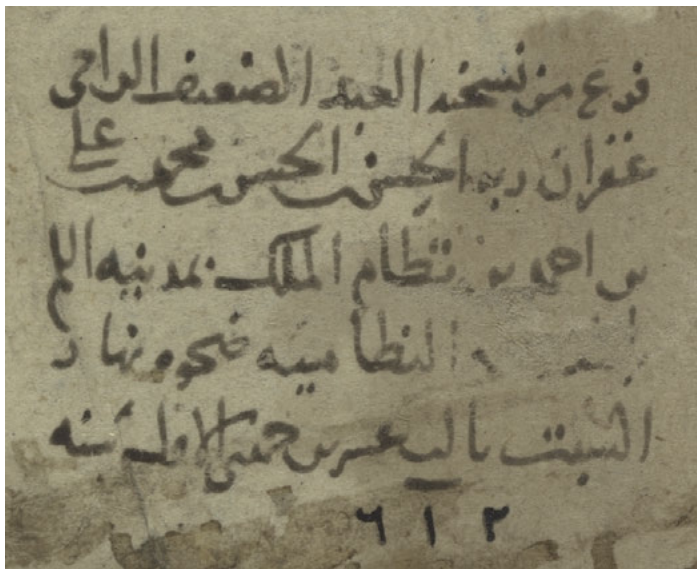 فرغ من نسخه العبد الضعيف الراجی
غفران ربه الحسن بن الحسين بن محمد بن علی
بن احمد بن نظام الملک بمدينه السلم
النظاميه ضحوه نهار
السبت ثالث عشرين جمدی الاولی سنه
٦ ١ ٣